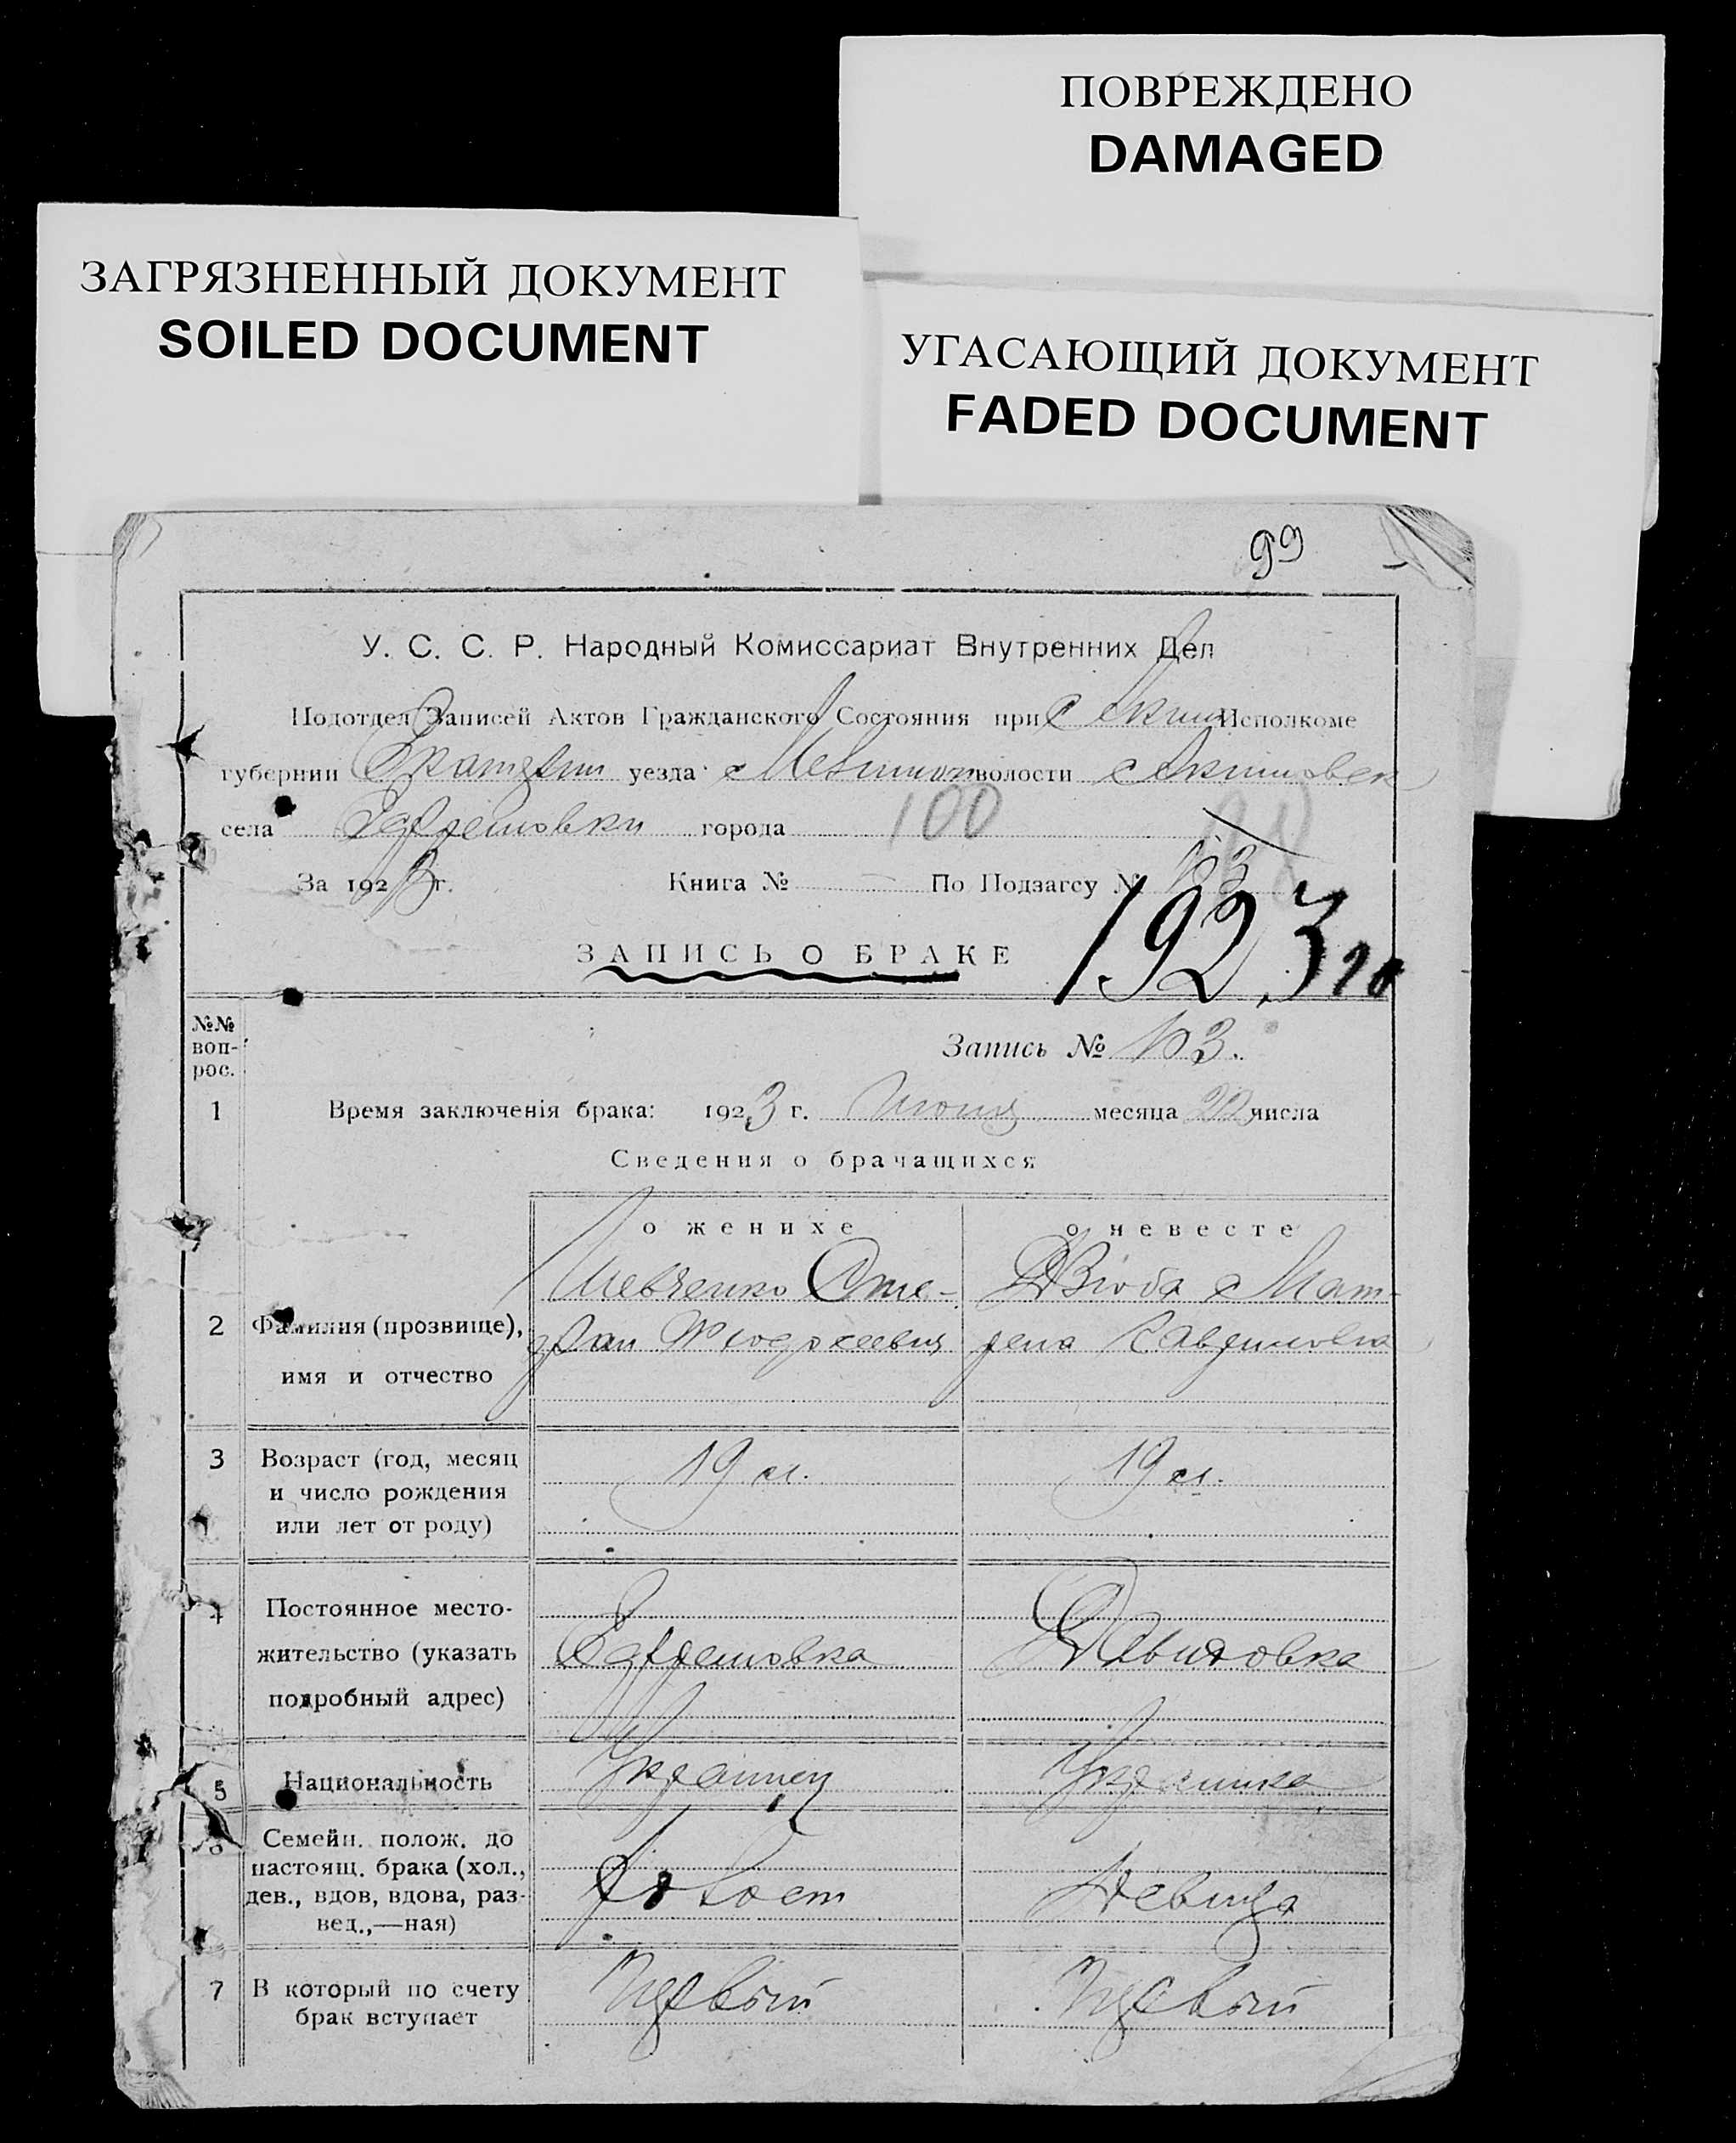 ПОВРЕЖДЕНО
DAMAGED
ЗАГРЯЗНЕННЫЙ ДОКУМЕНТ
SOILED DOCUMENT
УГАСАЮЩИЙ ДОКУМЕНТ
FADED DOCUMENT
99
У. С. С. Р. Народный Комиссариат Внутренних Дел
Подотдел Записей Актов Гражданского Состояния при Аким Исполкоме
губернии уезда волости Акимовск
села Ефремовки города 100
За 1923 г. Книга № По Подзагсу №
ЗАПИСЬ О БРАКЕ 1923
№№ воп-рос.
Запись №
1 Время заключенія брака: 1923 г. месяца 22 числа
Сведения о брачащихся
о женихе о невесте
2 Фамилия (прозвище), имя и отчество
Шевченко Сте- Дзюба Мат-
фан рена
3 Возраст (год, месяц и число рождения или лет от роду)
19 л. 19 л.
4 Постоянное место-жительство (указать подробный адрес)
Ефремовка Давидовка
5 Национальность Украинец Украинка
6 Семейн. полож. до настоящ. брака (хол., дев., вдов, вдова, раз-вед.,—ная)
Холост Девица
7 В который по счету брак вступает
Первый Первый